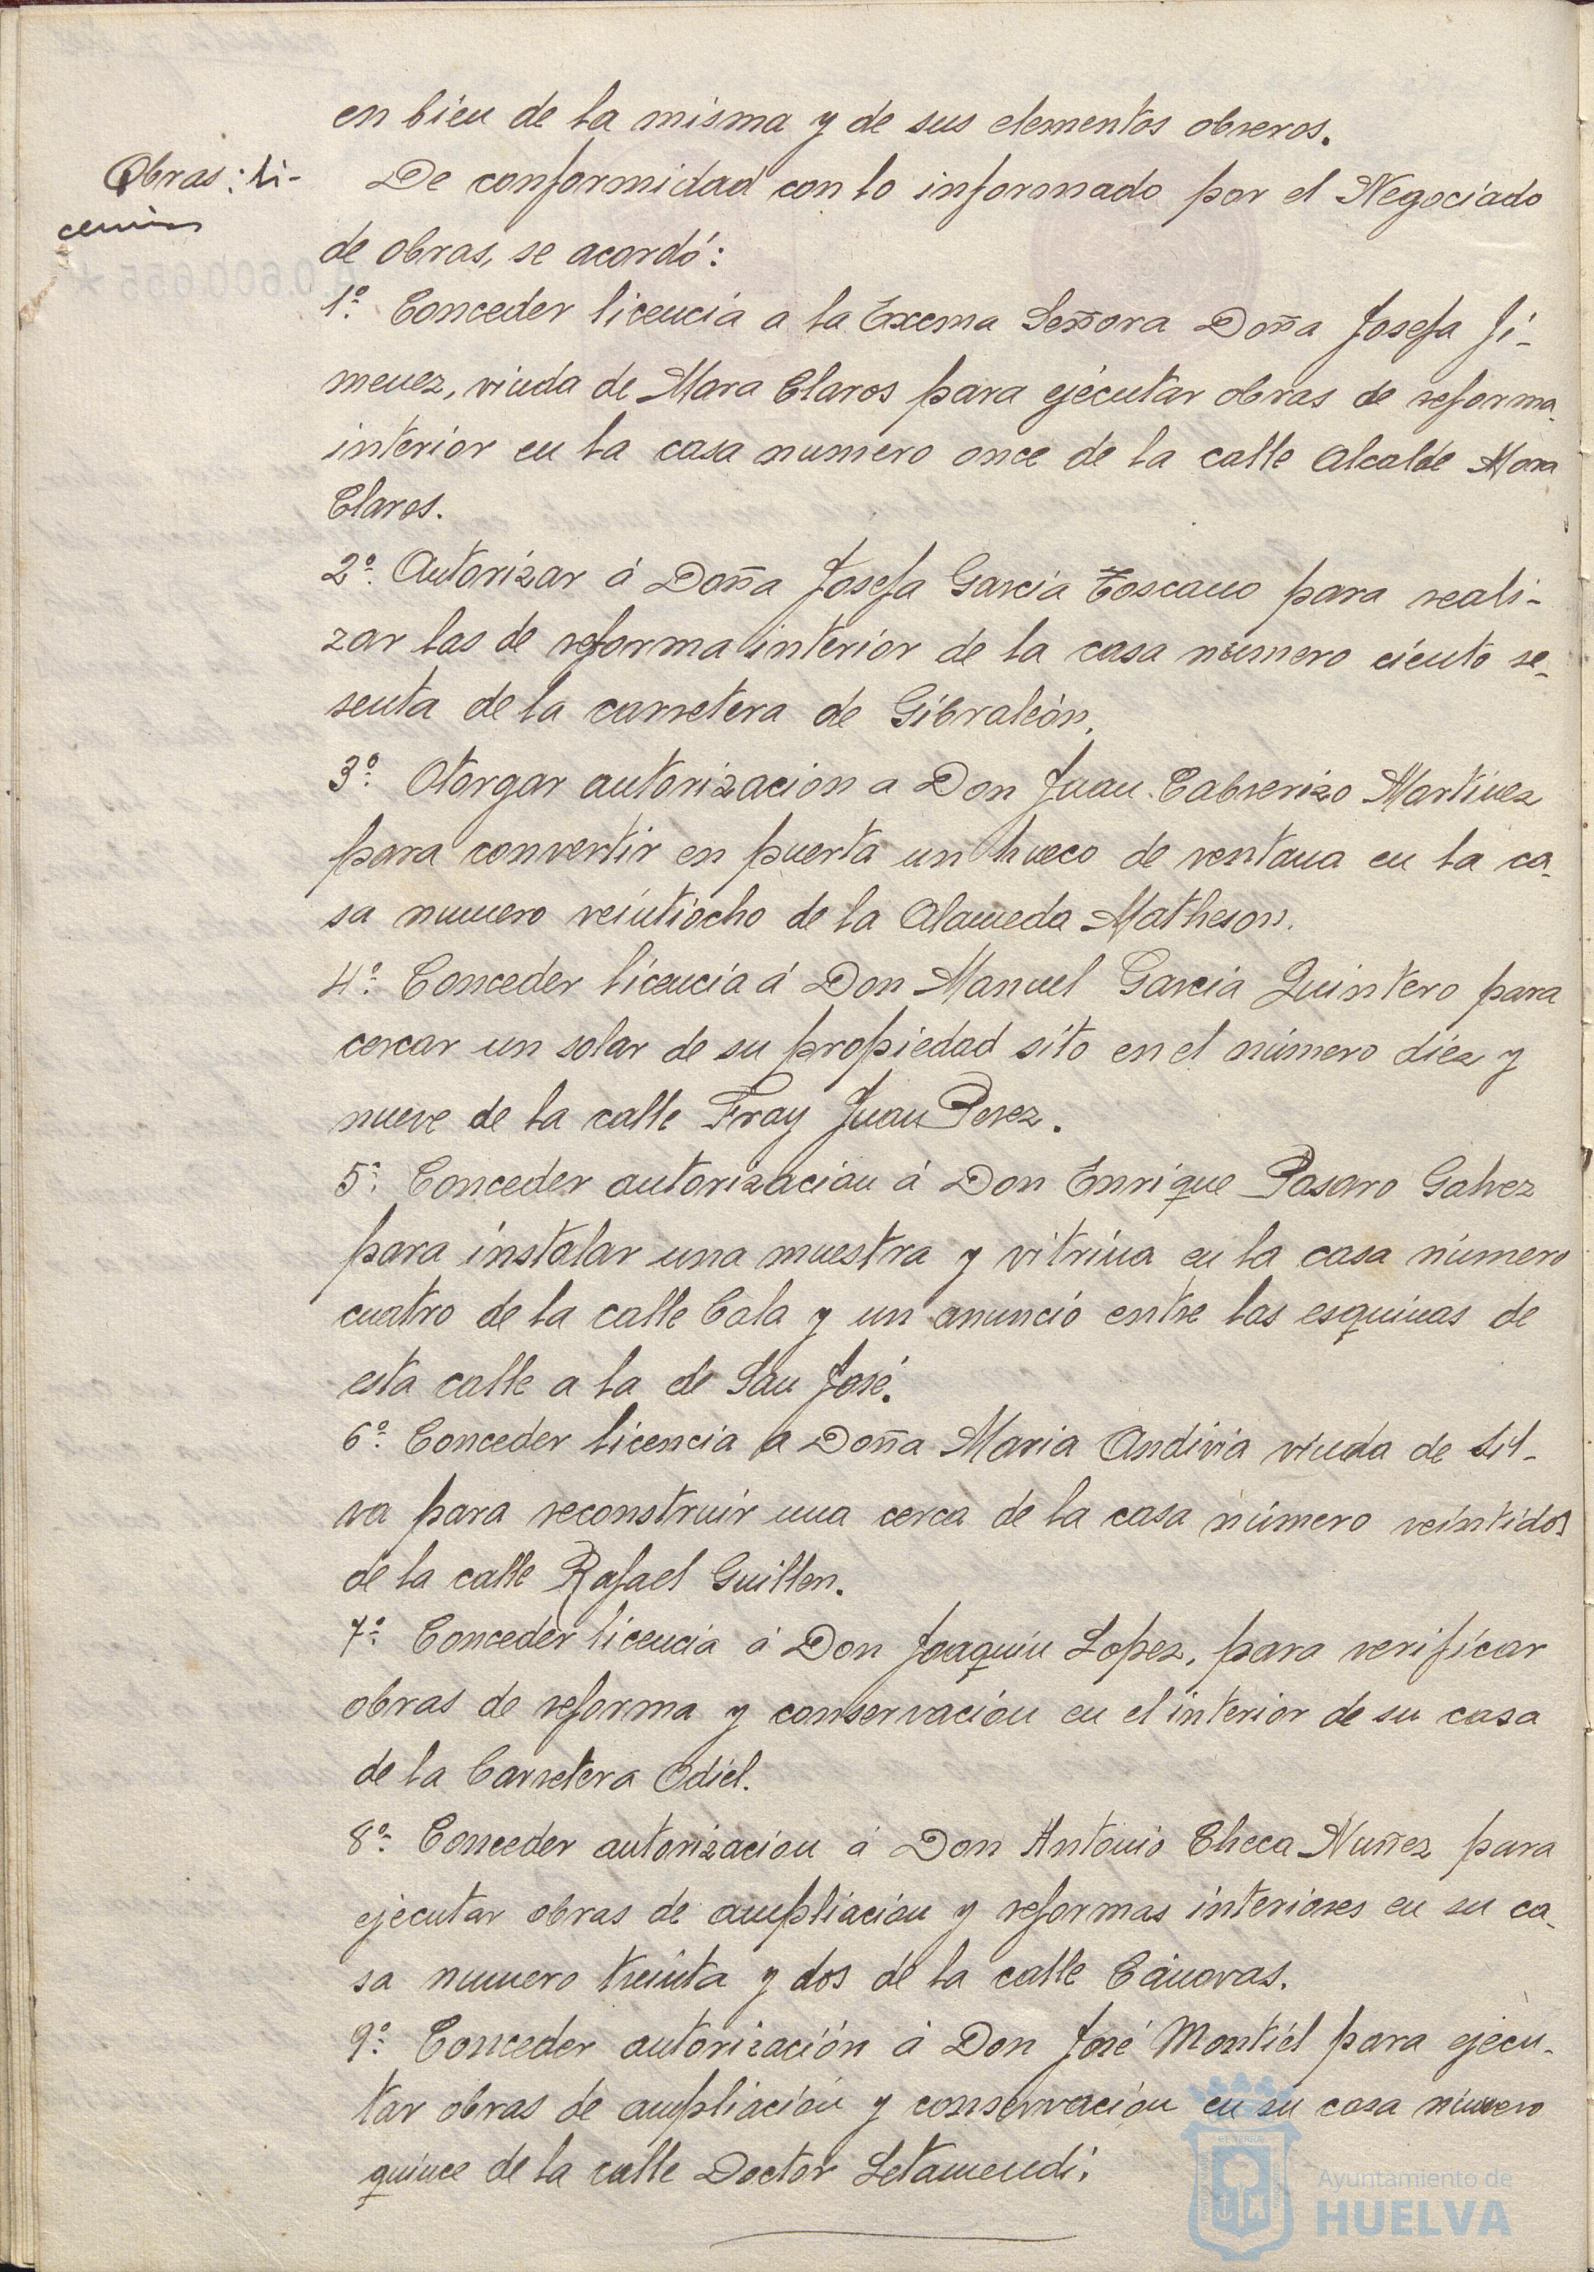 en bien de la misma y de sus elementos obreros.
Obras: li-
cencias
De conformidad con lo informado por el Negociado
de obras, se acordó:
1º. Conceder licencia a la Excma Señora Doña Josefa Ji-
menez, viuda de Mora Claros para ejecutar obras de reforma
interior en la casa numero once de la calle Alcalde Mora
Claros.
2º. Autorizar á Doña Josefa García Toscano para reali-
zar las de reforma interior de la casa número ciento se-
senta de la carretera de Gibraleón.
3º. Otorgar autorizacion a Don Juan Cabrerizo Martinez
para convertir en puerta un hueco de ventana en la ca-
sa numero veintiocho de la Alameda Matheson.
4º. Conceder licencia á Don Manuel Garcia Quintero para
cercar un solar de su propiedad sito en el número diez y
nueve de la calle Fray Juan Perez.
5º. Conceder autorización á Don Enrique Pasaro Galvez
para instalar una muestra y vitrina en la casa número
cuatro de la calle Cala y un anuncio entre las esquinas de
esta calle a la de San José.
6º. Conceder licencia a Doña Maria Andivia viuda de Sil-
va para reconstruir una cerca de la casa número veintidos
de la calle Rafael Guillen.
7º. Conceder licencia á Don Joaquin Lopez, para verificar
obras de reforma y conservación en el interior de su casa
de la Carretera Odiel.
8º. Conceder autorización á Don Antonio Checa Nuñez para
ejecutar obras de ampliación y reformas interiores en su ca-
sa numero treinta y dos de la calle Cánovas.
9º. Conceder autorización á Don José Montiel para ejecu-
tar obras de ampliación y conservación en su casa número
quince de la calle Doctor Letamendi.
Ayuntamiento de
HUELVA